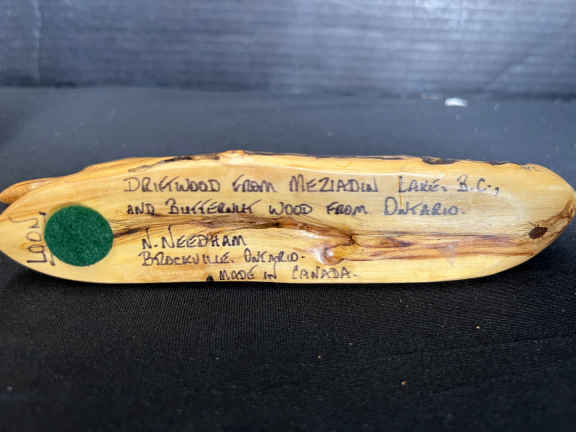 DRIFTWOOD FROM MEZIADIN LAKE, B.C.,
AND BUTTERNUT WOOD FROM ONTARIO.
N. NEEDHAM
BROCKVILLE, ONTARIO.
MADE IN CANADA.
LOON.